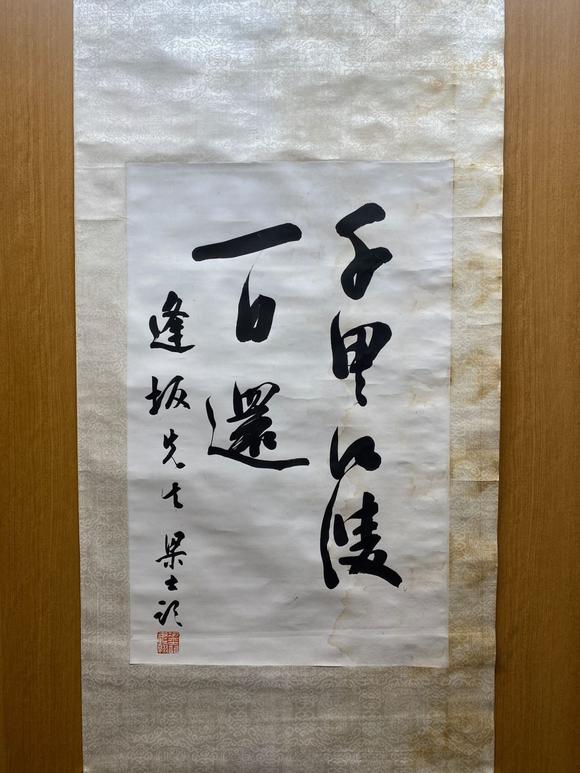 千里江陵
一日還
逢坂先生 梁士詒